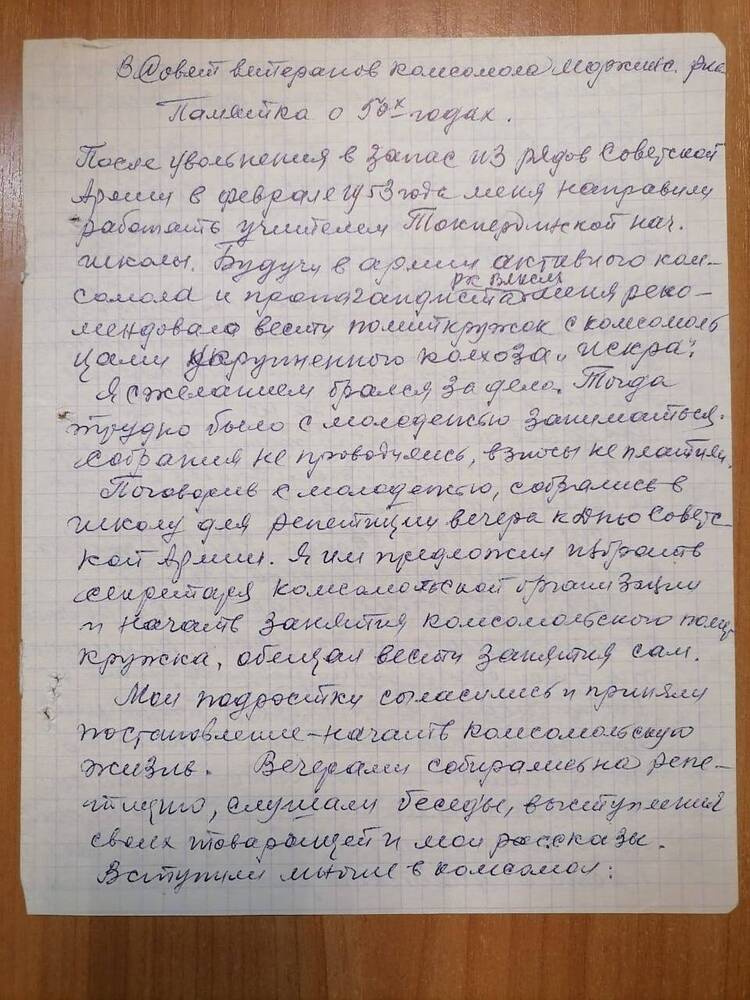 В Совет ветеранов комсомола Моркинс. р-на
Памятка о 50х годах.
После увольнения в запас из рядов Советской
Армии в феврале 1953 года меня направили
работать учителем Токпердинской нач.
школы. Будучи в армии активного ком-
рк ВЛКСМ
сомола и пропагандиста меня реко-
мендовало вести политкружок с комсомоль
цами укрупненного колхоза „Искра".
Я с желанием брался за дело. Тогда
трудно было с молодежью заниматься.
собрания не проводились, взносы не платили.
Поговорив с молодежью, собрались в
школу для репетиции вечера к Дню Советс-
кой Армии. Я им предложил избрать
секретаря комсомольской организации
и начать занятия комсомольского полит
кружка, обещал вести занятия сам.
Мои подростки сыгласились и приняли
постановление – начать комсомольскую
жизнь. Вечерами собирались на репе-
тицию, слушали беседы, выступления
своих товарищей и мои рассказы.
Вступили многие в комсомол: